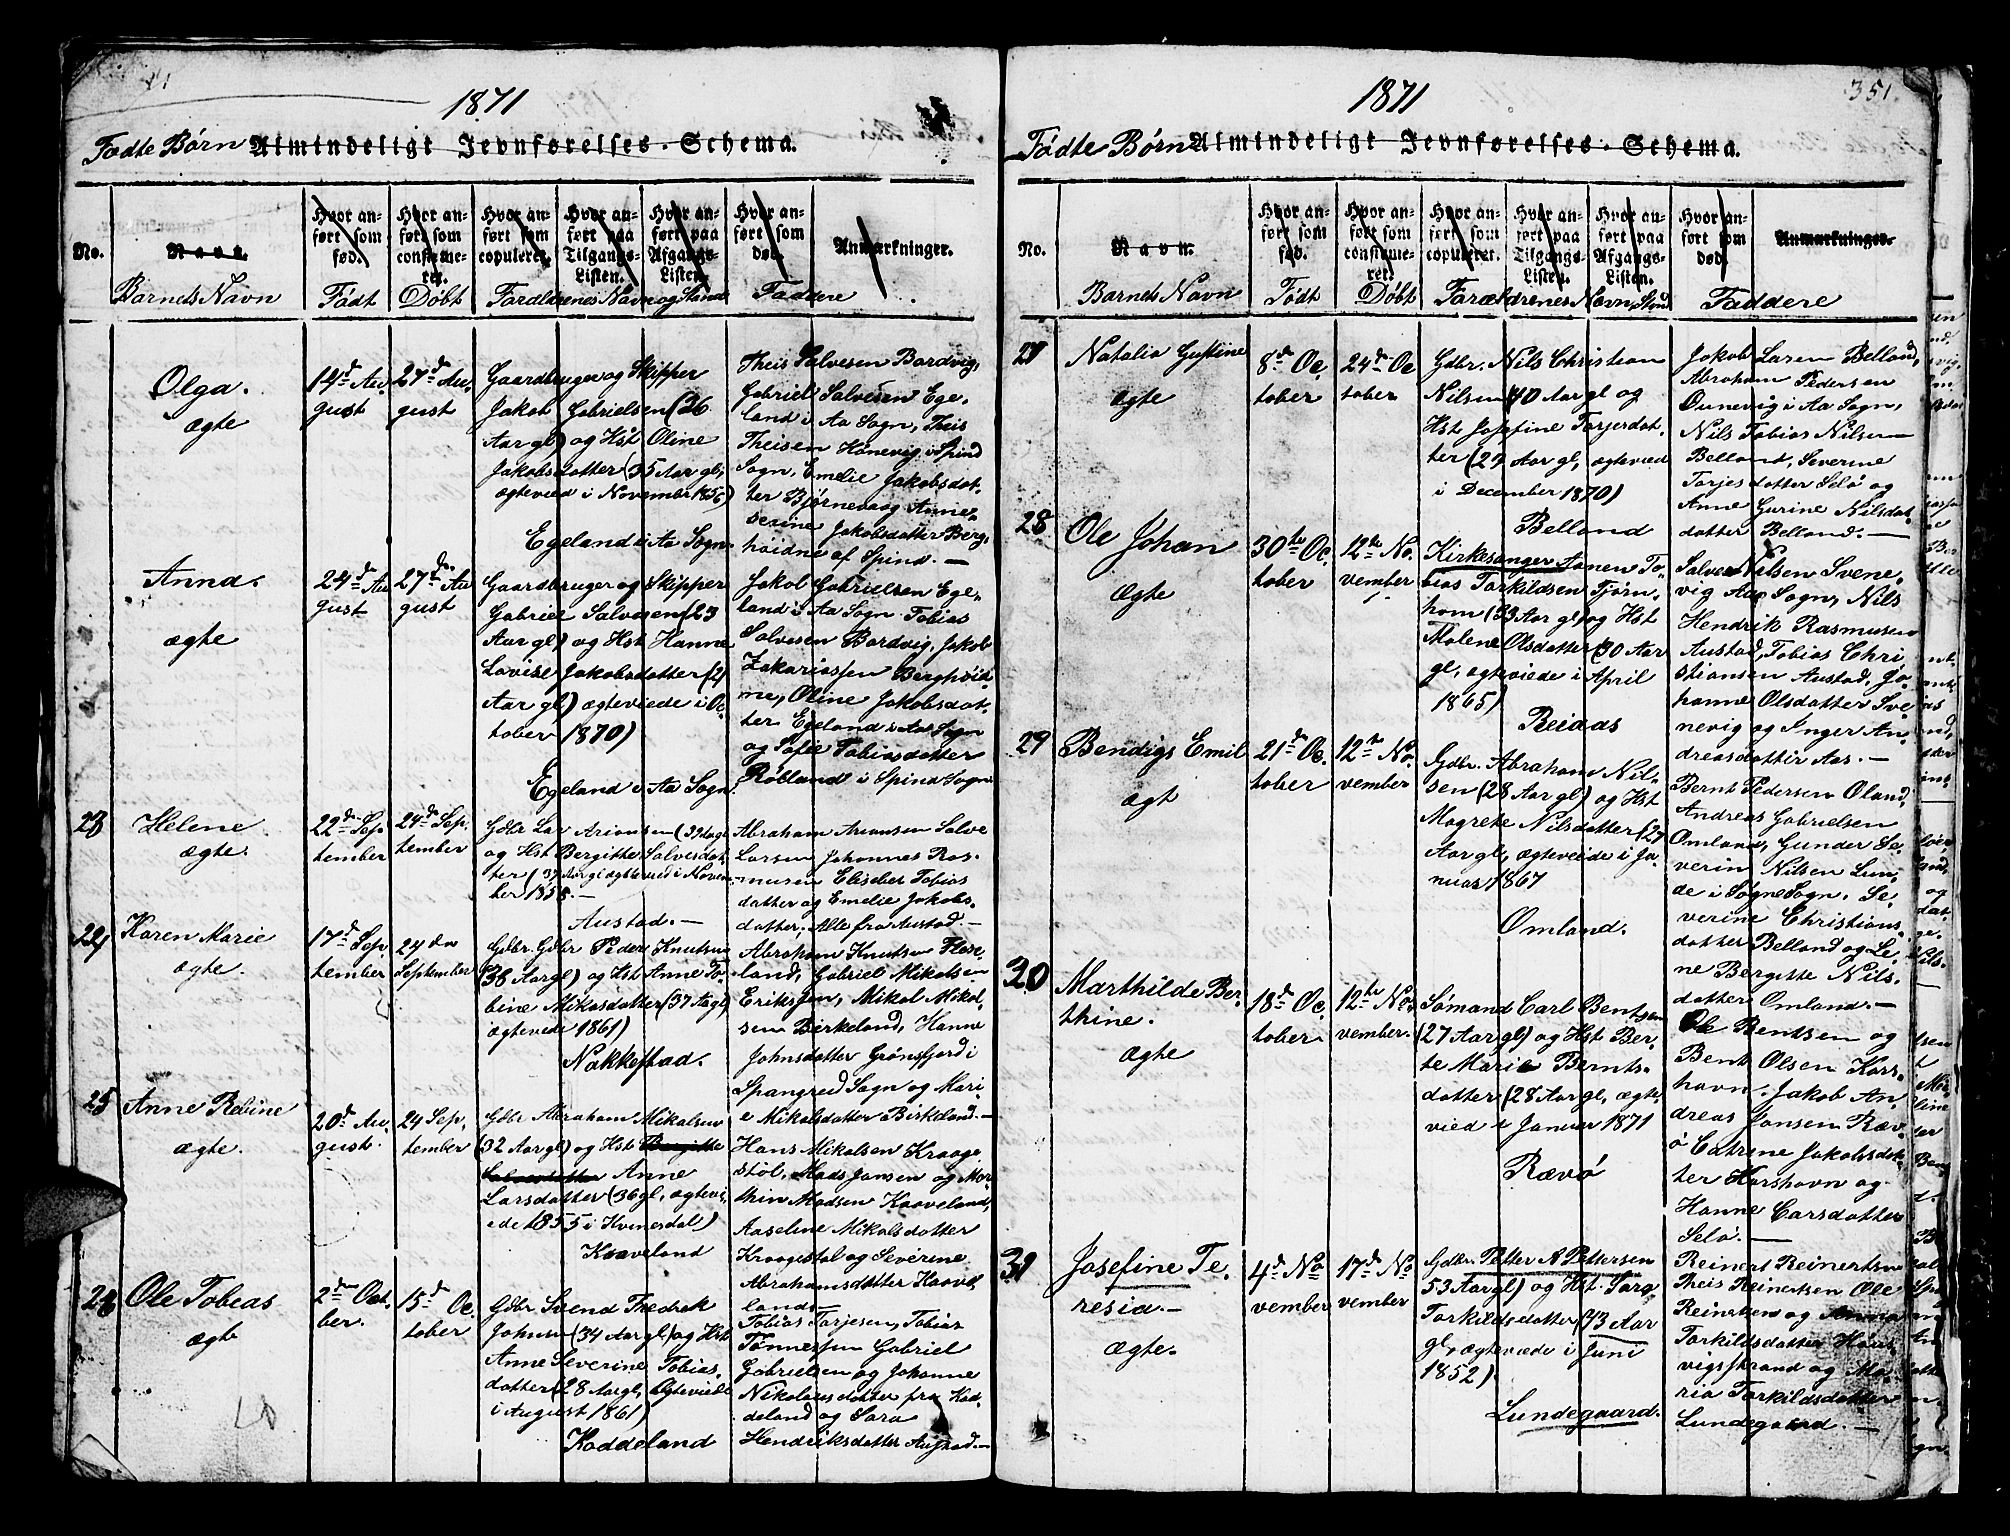 1871
Fødte Børn Almindeligt Jevnførelses-Schema.
No.
Navn.
Barnets Navn
Hvor an-
ført som
fød.
Født
Hvor an-
ført som
confirme-
ret.
Døbt
Hvor an-
ført som
copuleret.
Hvor an-
ført paa
Tilgangs-
Listen.
Hvor an-
ført paa
Afgangs-
Listen.
Forældrenes Navn og Stand
Hvor an-
ført som
død.
Faddere
Anmærkninger.
Olga.
ægte
14de Au-
gust
27de Au-
gust
Gaardbruger og Skipper
Jakob Gabrielsen (36
Aar gl) og Hst Oline
Jakobsdotter (35 Aar gl,
ægteviede i November 1856)
Egeland i Aa Sogn
Theis Salvesen Bardvig,
Gabriel Salvesen Ege-
land i Aa Sogn, Theis
Theisen Hønevig i Spind
Sogn, Emelie Jakobsdot-
ter Bjørnevaag Anne-
serine Jakobsdotter Berg-
høidne af Spind.
Anna.
ægte
24de Au
gust
27de Au
gust
Gaardbruger og Skipper
Gabriel Salvesen (23
Aar gl) og Hst Hanne
Lovise Jakobsdotter (21
Aar gl) ægteviede i Oc-
tober 1870)
Egeland i Aa Sogn.
Jakob Gabrielsen Ege-
land i Aa Sogn Tobias
Salvesen Bardvig, Jakob
Zakariassen Berghøid-
ne, Oline Jakobsdot-
ter Egeland i Aa Sogn
og Sofie Tobiasdotter
Røiland i Spind Sogn
23
Helene.
ægte.
22de Sep
tember
24de Sep.
tember
Gdbr Lar Arionsen (39 Aar gl
og Hst Bergitte Salvesdot-
ter (37 Aar gl ægteviede i Novem-
ber 1858.
Austad.
Abraham Arionsen Salve
Larsen Johannes Ras-
musen Elisebet Tobias
dotter og Emelie Jakobs-
dotter. Alle fra Austad
24
Karen Marie
ægte.
17de Sep
tember
24de
September
Gdbr. Gdbr Peder Knutsen
(38 Aar gl) og Hst Anne To-
bine Mikalsdotter (37 Aar gl)
ægteviede 1861)
Nakkestad.
Abraham Knutsen Fløse-
land, Gabriel Mikalsen
Eriksen, Mikal Mikal-
sen Birkeland, Hanne
Johnsdotter Grønsfjord i
Spangreid Sogn og Mari-
e Mikalsdotter Birkeland.
25
Anne Rebine
ægte.
20de Au-
gust.
24 Sep-
tember
Gdbr Abraham Mikalsen
(32 Aar gl) og Hst Bergitte
Salvesdotter Anne
Larsdotter (36 gl, ægtevi-
ede 1855 i Kvinesdal)
Kaaveland
Hans Mikalsen Kraage
støl, Mads Jansen og Mar-
thin Madsen Kaaveland,
Aaseline Mikalsdotter
Kraagestøl og Severine
Abrahamsdotter Kaave-
land
26
Ole Tobias
ægte
2den Octo-
ber.
15de Oc
tober
Gdbr Svend Fredrik
Johnsen (34 Aar gl) og Hst
Anne Severine Tobias-
dotter (28 Aar gl, ægteviede
i August 1861)
Kaddeland
Tobias Torjesen, Tobias
Tønnessen Gabriel
Gabrielsen og Johanne
Nikolaisdotter fra Kad-
deland og Sara
Hendriksdotter Austad.
1871
351.
Fødte Børn Almindeligt Jevnførelses-Schema.
No.
Navn.
Barnets Navn
Hvor an-
ført som
fød.
Født
Hvor an-
ført som
confirme-
ret.
Døbt
Hvor an-
ført som
copuleret.
Hvor an-
ført paa
Tilgangs-
Listen.
Hvor an-
ført paa
Afgangs-
Listen.
Forældrenes Navn, Stand
Hvor an-
ført som
død.
Faddere
Anmærkninger.
27
Natalia Gustine
ægte
8de Oc
tober
24de Oc
tober
Gdbr. Nils Christian
Nilsen (40 Aar gl og
Hst Josefine Torjesdot-
ter (24 Aar gl, ægteviede
i December 1870)
Belland
Jakob Larsen Belland,
Abraham Pedersen
Ounevig i Aa Sogn,
Nils Tobias Nilsen
Belland, Severine
Torjesdotter Selø og
Anne Gurine Nilsdot-
dotter Belland.
28
Ole Johan
Ægte
30te Oc-
tober
12te No-
vember
Kirkesanger Aanen To-
bias Torkildsen Tjørn-
hom (33 Aar gl) og Hst
Malene Olsdotter (30 Aar
gl, ægteviede i April
1865)
Reiaas
Salve Nilsen Svene-
vig Aas Sogn, Nils
Hendrik Rasmusen
Austad, Tobias Chri-
stiansen Austad, Jo-
hanne Olsdotter Sve-
nevig og Inger An-
dreasdotter Aas.
29
Bendigs Emil
ægt
21de Oc.
tober
12te No-
vember
Gdbr. Abraham Nil-
sen (28 Aar gl) og Hst
Magrete Nilsdotter (27
Aar gl, ægteviede i Ja-
nuar 1867
Omland.
Bernt Pedersen Øland,
Andreas Gabrielsen
Omland, Gunder Se-
verin Nilsen Lun-
de i Søgne Sogn. Se-
verine Christians-
dotter Belland og Le-
ne Bergitte Nils-
dotter Omland.
30
Marthilde Ber-
thine.
Ægte
18de Oc-
tober
12te No-
vember.
Sømand Carl Bentsen
(27 Aar gl) og Hst Ber-
te Marie Bernts-
dotter (28 Aar gl, ægte-
vied i Januar 1871
Rævø
Ole Bentsen og
Bent Olsen Kors-
havn. Jakob An-
dreas Jansen Ræv-
ø Catrine Jakobsdot-
ter Korshavn og
Hanne Carsdotter
Selø.
31
Josefine Te-
resia
ægte.
4de No
vember
17de No
vember
Gdbr Petter A Pettersen
53 Aar gl) og Hst Sara
Torkildsdotter (43 Aar
gl, ægteviede i Juni
1852)
Lundegaard.
Reinert Reinertsen
Theis Reinertsen Ole
Reinertsen og Anna
Torkildsdotter Haus-
vigsstrand og Ma-
ria Torkildsdotter
Lundegaard.